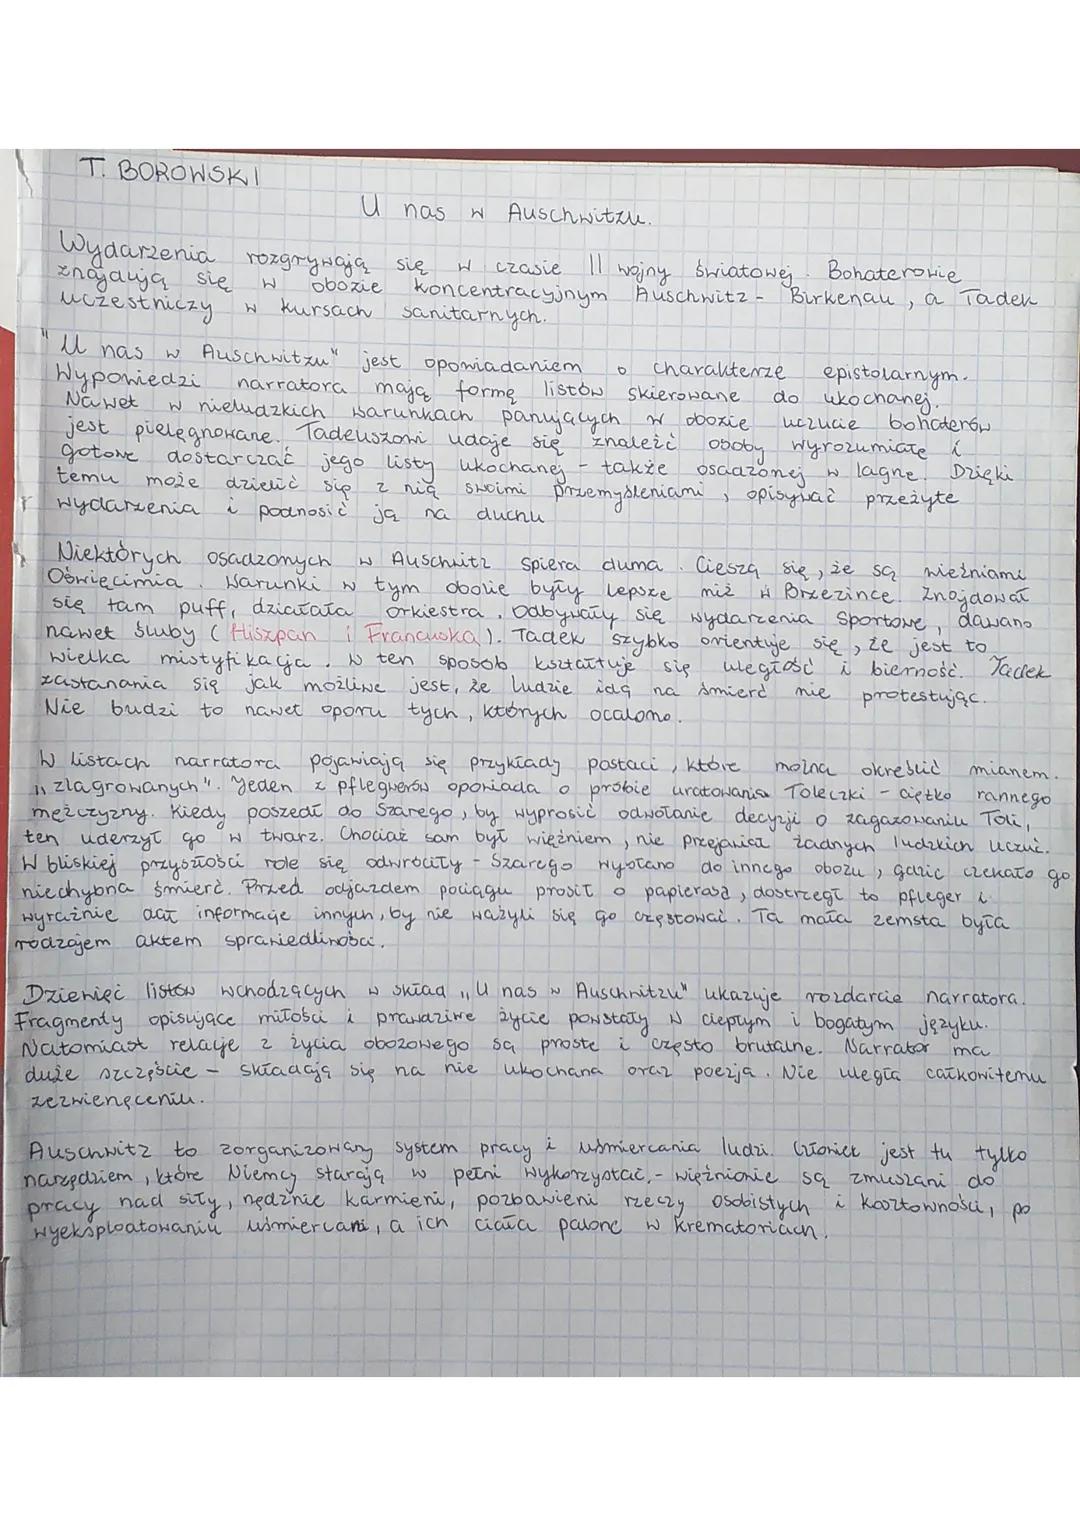 T. BOROWSKI
U nas w Auschwitzu.
Wydarzenia rozgrywają się w czasie II wojny światowej. Bohaterowie
znajdują się w obozie koncentracyjnym Auschwitz - Birkenau, a Tadek
uczestniczy w kursach sanitarnych.
"U nas w Auschwitzu" jest opowiadaniem o charakterze epistolarnym.
Wypowiedzi narratora mają formę listów skierowane do ukochanej.
Nawet w nieludzkich warunkach panujących w obozie uczucie bohaterów
jest pielęgnowane. Tadeuszowi udaje się znaleźć osoby wyrozumiałe i
gotowe dostarczać jego listy ukochanej - także osadzonej w lagrze. Dzięki
temu może dzielić się z nią swoimi przemyśleniami, opisywać przeżyte
wydarzenia i podnosić ją na duchu
Niektórych osadzonych w Auschwitz spiera duma. Cieszą się, że są więźniami
Oświęcimia. Warunki w tym obozie były lepsze niż w Brzezince. Znajdował
się tam puff, działała orkiestra, odbywały się wydarzenia sportowe, dawano
nawet śluby (Hiszpan i Francuska). Tadek szybko orientuje się, że jest to
wielka mistyfikacja. W ten sposób kształtuje się uległość i bierność. Tadek
zastanania się jak możliwe jest, że ludzie idą na śmierć nie protestując.
Nie budzi to nawet oporu tych, których ocalono.
W listach narratora pojawiają się przykłady postaci, które można określić mianem.
„zlagrowanych". Jeden z pflegerów opowiada o próbie uratowania Toleczki - ciężko rannego
mężczyzny. Kiedy poszedł do Szarego, by wyprosić odwołanie decyzji o zagazowaniu Toli,
ten uderzył go w twarz. Chociaż sam był więźniem, nie przejawiał żadnych ludzkich uczuć.
W bliskiej przyszłości role się odwróciły - Szarego wysłano do innego obozu, gdzie czekało go
niechybna śmierć. Przed odjazdem pociągu prosił o papierosa, dostrzegł to pfleger i
wyraźnie dał informacje innych, by nie ważyli się go częstować. Ta mała zemsta była
rodzajem aktem sprawiedliwości.
Dziewięć listów wchodzących w skład „U nas w Auschwitzu" ukazuje rozdarcie narratora.
Fragmenty opisujące miłości i prawdziwe życie powstały w ciepłym i bogatym języku.
Natomiast relacje z życia obozowego są proste i często brutalne. Narrator ma
duże szczęście - składają się na nie ukochana oraz poezja. Nie uległa całkowitemu
zezwierzęceniu.
Auschwitz to zorganizowany system pracy i uśmiercania ludzi. Człowiek jest tu tylko
narzędziem, które Niemcy starają w pełni wykorzystać, - więźniowie są zmuszani do
pracy nad siły, nędznie karmieni, pozbawieni rzeczy osobistych i kosztowności, po
wyeksploatowaniu uśmiercani, a ich ciała palone w krematoriach.